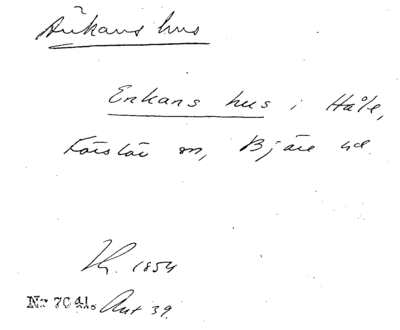 Änkans hus
Enkans hus i Håle,
Förslöv sn, Bjäre hd.
1854
Nr 7041. Ant 39.